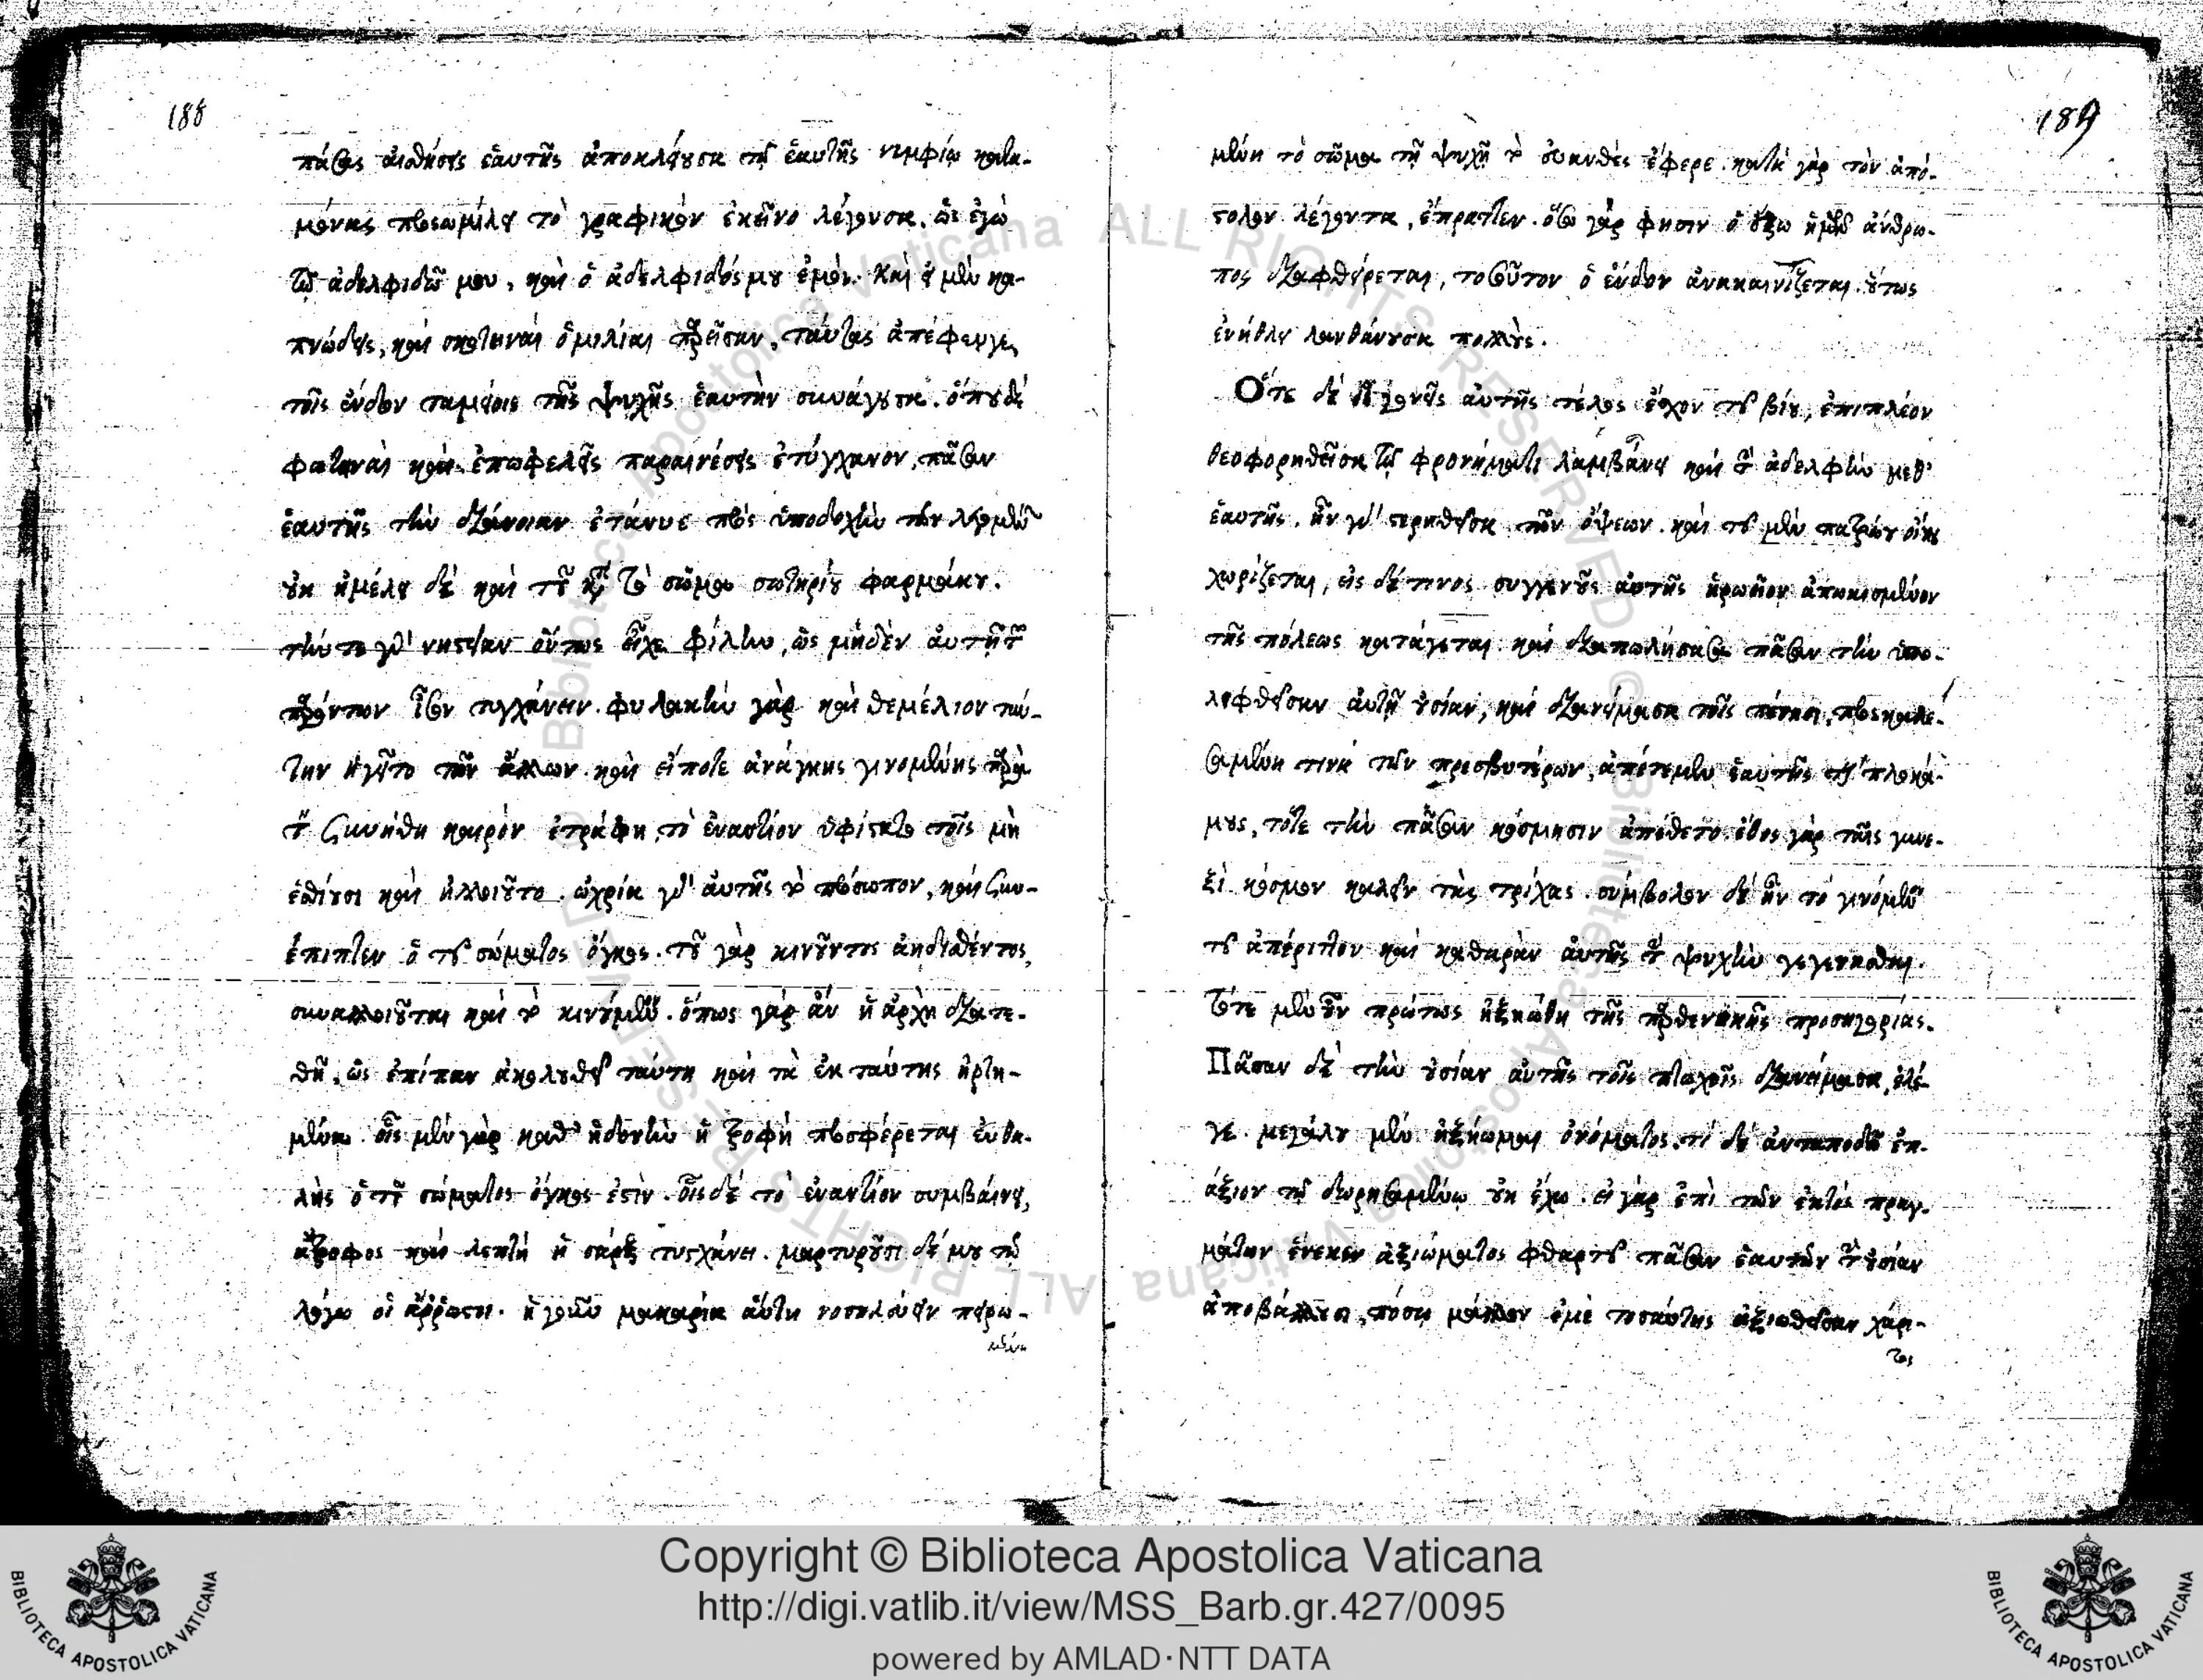 188
πάσας αἰσθήσεις ἑαυτῆς ἀποκλείουσα τῷ ἑαυτῆς νυμφίῳ κατα-
μόνας προσωμίλει τὸ γραφικὸν ἐκεῖνο λέγουσα. ὡς ἐγὼ
τῷ ἀδελφιδῷ μου, καὶ ὁ ἀδελφιδός μου ἐμοί. Καὶ εἰ μὲν κα-
πνώδεις, καὶ σκοτειναὶ ὁμιλίαι παρῆσαν, ταύτας ἀπέφευγε,
τοῖς ἔνδον ταμείοις τῆς ψυχῆς ἑαυτὴν συνάγουσα. ὅπου δὲ
φωτειναὶ καὶ ἐπωφελεῖς παραινέσεις ἐτύγχανον, πᾶσαν
ἑαυτῆς τὴν διάνοιαν ἐτάνυε πρὸς ὑποδοχὴν τῶν λεγομένων
οὐκ ἠμέλει δὲ καὶ τοῦ κατὰ τὸ σῶμα σωτηρίου φαρμάκου.
τήν τε γὰρ νηστείαν οὕτως εἶχε φίλην, ὡς μηδὲν αὐτῇ τῶν
παρόντων ἴσον τυγχάνειν. φυλακὴν γὰρ καὶ θεμέλιον ταύ-
την ἡγεῖτο τῶν ἄλλων. καὶ εἴποτε ἀνάγκης γινομένης παρὰ
τὸν συνήθη καιρὸν ἐτράφη, τὸ ἐναντίον ὑφίστατο τοῖς μὴ
ἐσθίουσι καὶ ἠλλοιοῦτο. ὠχρία γὰρ αὐτῆς τὸ πρόσωπον, καὶ συν-
έπιπτεν ὁ τοῦ σώματος ὄγκος. τοῦ γὰρ κινοῦντος ἀηδισθέντος,
συναλλοιοῦται καὶ τὸ κινούμενον. ὅπως γὰρ ἂν ἡ ἀρχὴ διατε-
θῇ, ὡς ἐπίπαν ἀκολουθεῖ ταύτῃ καὶ τὰ ἐκ ταύτης ἠρτη-
μένα. οἷς μὲν γὰρ καθ' ἡδονὴν ἡ τροφὴ προσφέρεται εὐθα-
λὴς ὁ τοῦ σώματος ὄγκος ἐστίν. οἷς δὲ τὸ ἐναντίον συμβαίνει,
ἄτροφος καὶ λεπτὴ ἡ σὰρξ τυγχάνει. μαρτυροῦσι δέ μου τῷ
λόγῳ οἱ ἄρρωστοι. ἡ γοῦν μακαρία αὕτη νοσηλεύειν πειρω-
μένη
189
μένη τὸ σῶμα τῇ ψυχῇ τὸ εὐανθὲς ἔφερε. κατὰ γὰρ τὸν ἀπό-
στολον λέγοντα, ἔπραττεν. ὅσῳ γάρ φησιν ὁ ἔξω ἡμῶν ἄνθρω-
πος διαφθείρεται, τοσοῦτον ὁ ἔνδον ἀνακαινίζεται. οὕτως
ἐνήθλει λανθάνουσα πολλούς.
Ὅτε δὲ οἱ γονεῖς αὐτῆς τέλος ἔσχον τοῦ βίου, ἐπιπλέον
θεοφορηθεῖσα τῷ φρονήματι λαμβάνει καὶ τὴν ἀδελφὴν μεθ'
ἑαυτῆς. ἦν γὰρ στερηθεῖσα τῶν ὄψεων. καὶ τοῦ μὲν πατρῴου οἴκου
χωρίζεται, εἰς δέ τινος συγγενοῦς αὐτῆς ἡρωεῖον ἀπῳκισμένον
τῆς πόλεως κατάγεται. καὶ διαπωλήσασα πᾶσαν τὴν ὑπο-
λειφθεῖσαν αὐτῇ οὐσίαν, καὶ διανείμασα τοῖς πένησι, προσκαλε-
σαμένη τινὰ τῶν πρεσβυτέρων, ἀπέτεμεν ἑαυτῆς τοὺς πλοκά-
μους, τότε τὴν πᾶσαν κόσμησιν ἀπέθετο. ἔθος γὰρ ταῖς γυναι-
ξὶ κόσμον καλεῖν τὰς τρίχας. σύμβολον δὲ ἦν τὸ γινόμενον
τοῦ ἀπέριττον καὶ καθαρὰν αὐτῆς τὴν ψυχὴν γεγενῆσθαι.
τότε μὲν οὖν πρώτως ἠξιώθη τῆς παρθενικῆς προσηγορίας.
Πᾶσαν δὲ τὴν οὐσίαν αὐτῆς τοῖς πτωχοῖς διανείμασα, ἔλε-
γε. μεγάλου μὲν ἠξίωμαι ὀνόματος. τί δὲ ἀνταποδῶ ἐπ-
άξιον τῷ δωρησαμένῳ οὐκ ἔχω. εἰ γὰρ ἐπὶ τῶν ἐκτὸς πραγ-
μάτων ἕνεκεν ἀξιώματος φθαρτοῦ πᾶσαν ἑαυτῶν τὴν οὐσίαν
ἀποβάλλουσι, πόσῳ μᾶλλον ἐμὲ τοσαύτης ἀξιωθεῖσαν χάρι-
τος
Copyright © Biblioteca Apostolica Vaticana
http://digi.vatlib.it/view/MSS_Barb.gr.427/0095
powered by AMLAD·NTT DATA
BIBLIOTECA APOSTOLICA VATICANA
BIBLIOTECA APOSTOLICA VATICANA